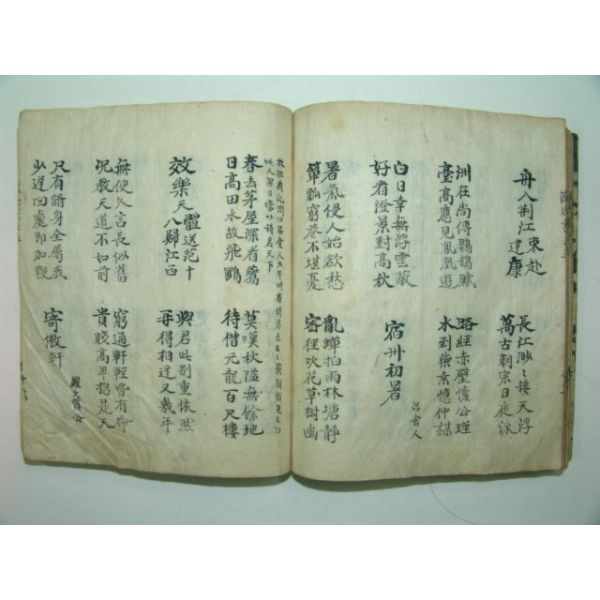 舟入荊江東赴建康
長江渺々接天浮
萬古朝宗日夜流
洲在尚傳鸚鵡賦
臺高應見鳳凰遊
路經赤壁懷公瑾
水到柴桑憶仲謀
白日幸無浮雲蔽
好看澄景對高秋
宿州初暑
呂舍人
暑氣侵人始欲愁
簞瓢窮巷不堪憂
亂蟬怕雨林塘靜
密徑吹花草樹幽
春去茅屋深看鷰
日高田水故飛鷗
莫莫秋隘無餘地
待借元龍百尺樓
效樂天體送范十八歸江西
與君此別重依然
再得相逢又幾年
無使人言長似舊
况教天道不如前
窮通軒輊皆有命
貴賤高卑捴是天
只有脩身全屬我
少遲回處即加鞭
寄傲軒